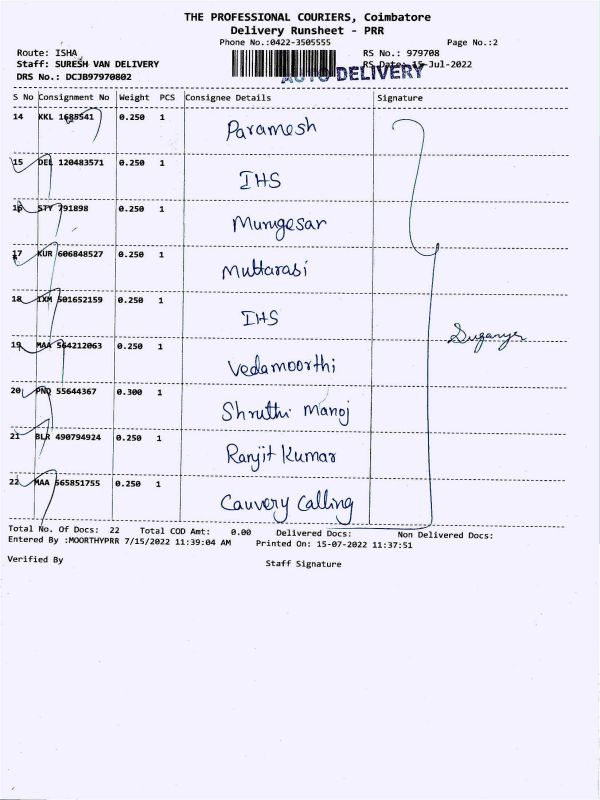 THE PROFESSIONAL COURIERS, Coimbatore
Delivery Runsheet - PRR
Phone No.:0422-3505555 Page No.:2
Route: ISHA RS No.: 979708
Staff: SURESH VAN DELIVERY RS Date: 15-Jul-2022
AUTO DELIVERY
DRS No.: DCJB97970802
S No Consignment No Weight PCS Consignee Details Signature
14 KKL 1685541 0.250 1 Paramesh
15 DEL 120483571 0.250 1 IHS
16 STY 791898 0.250 1 Murugesan
17 KUR 606848527 0.250 1 Muttarasi
18 IXM 501652159 0.250 1 IHS
Suganya
19 MAA 564212063 0.250 1 Vedamoorthi
20 PNQ 55644367 0.300 1 Shruthi Manoj
21 BLR 490794924 0.250 1 Ranjit Kumar
22 MAA 565851755 0.250 1 Cauvery Calling
Total No. Of Docs: 22 Total COD Amt: 0.00 Delivered Docs: Non Delivered Docs:
Entered By :MOORTHYPRR 7/15/2022 11:39:04 AM Printed On: 15-07-2022 11:37:51
Verified By Staff Signature